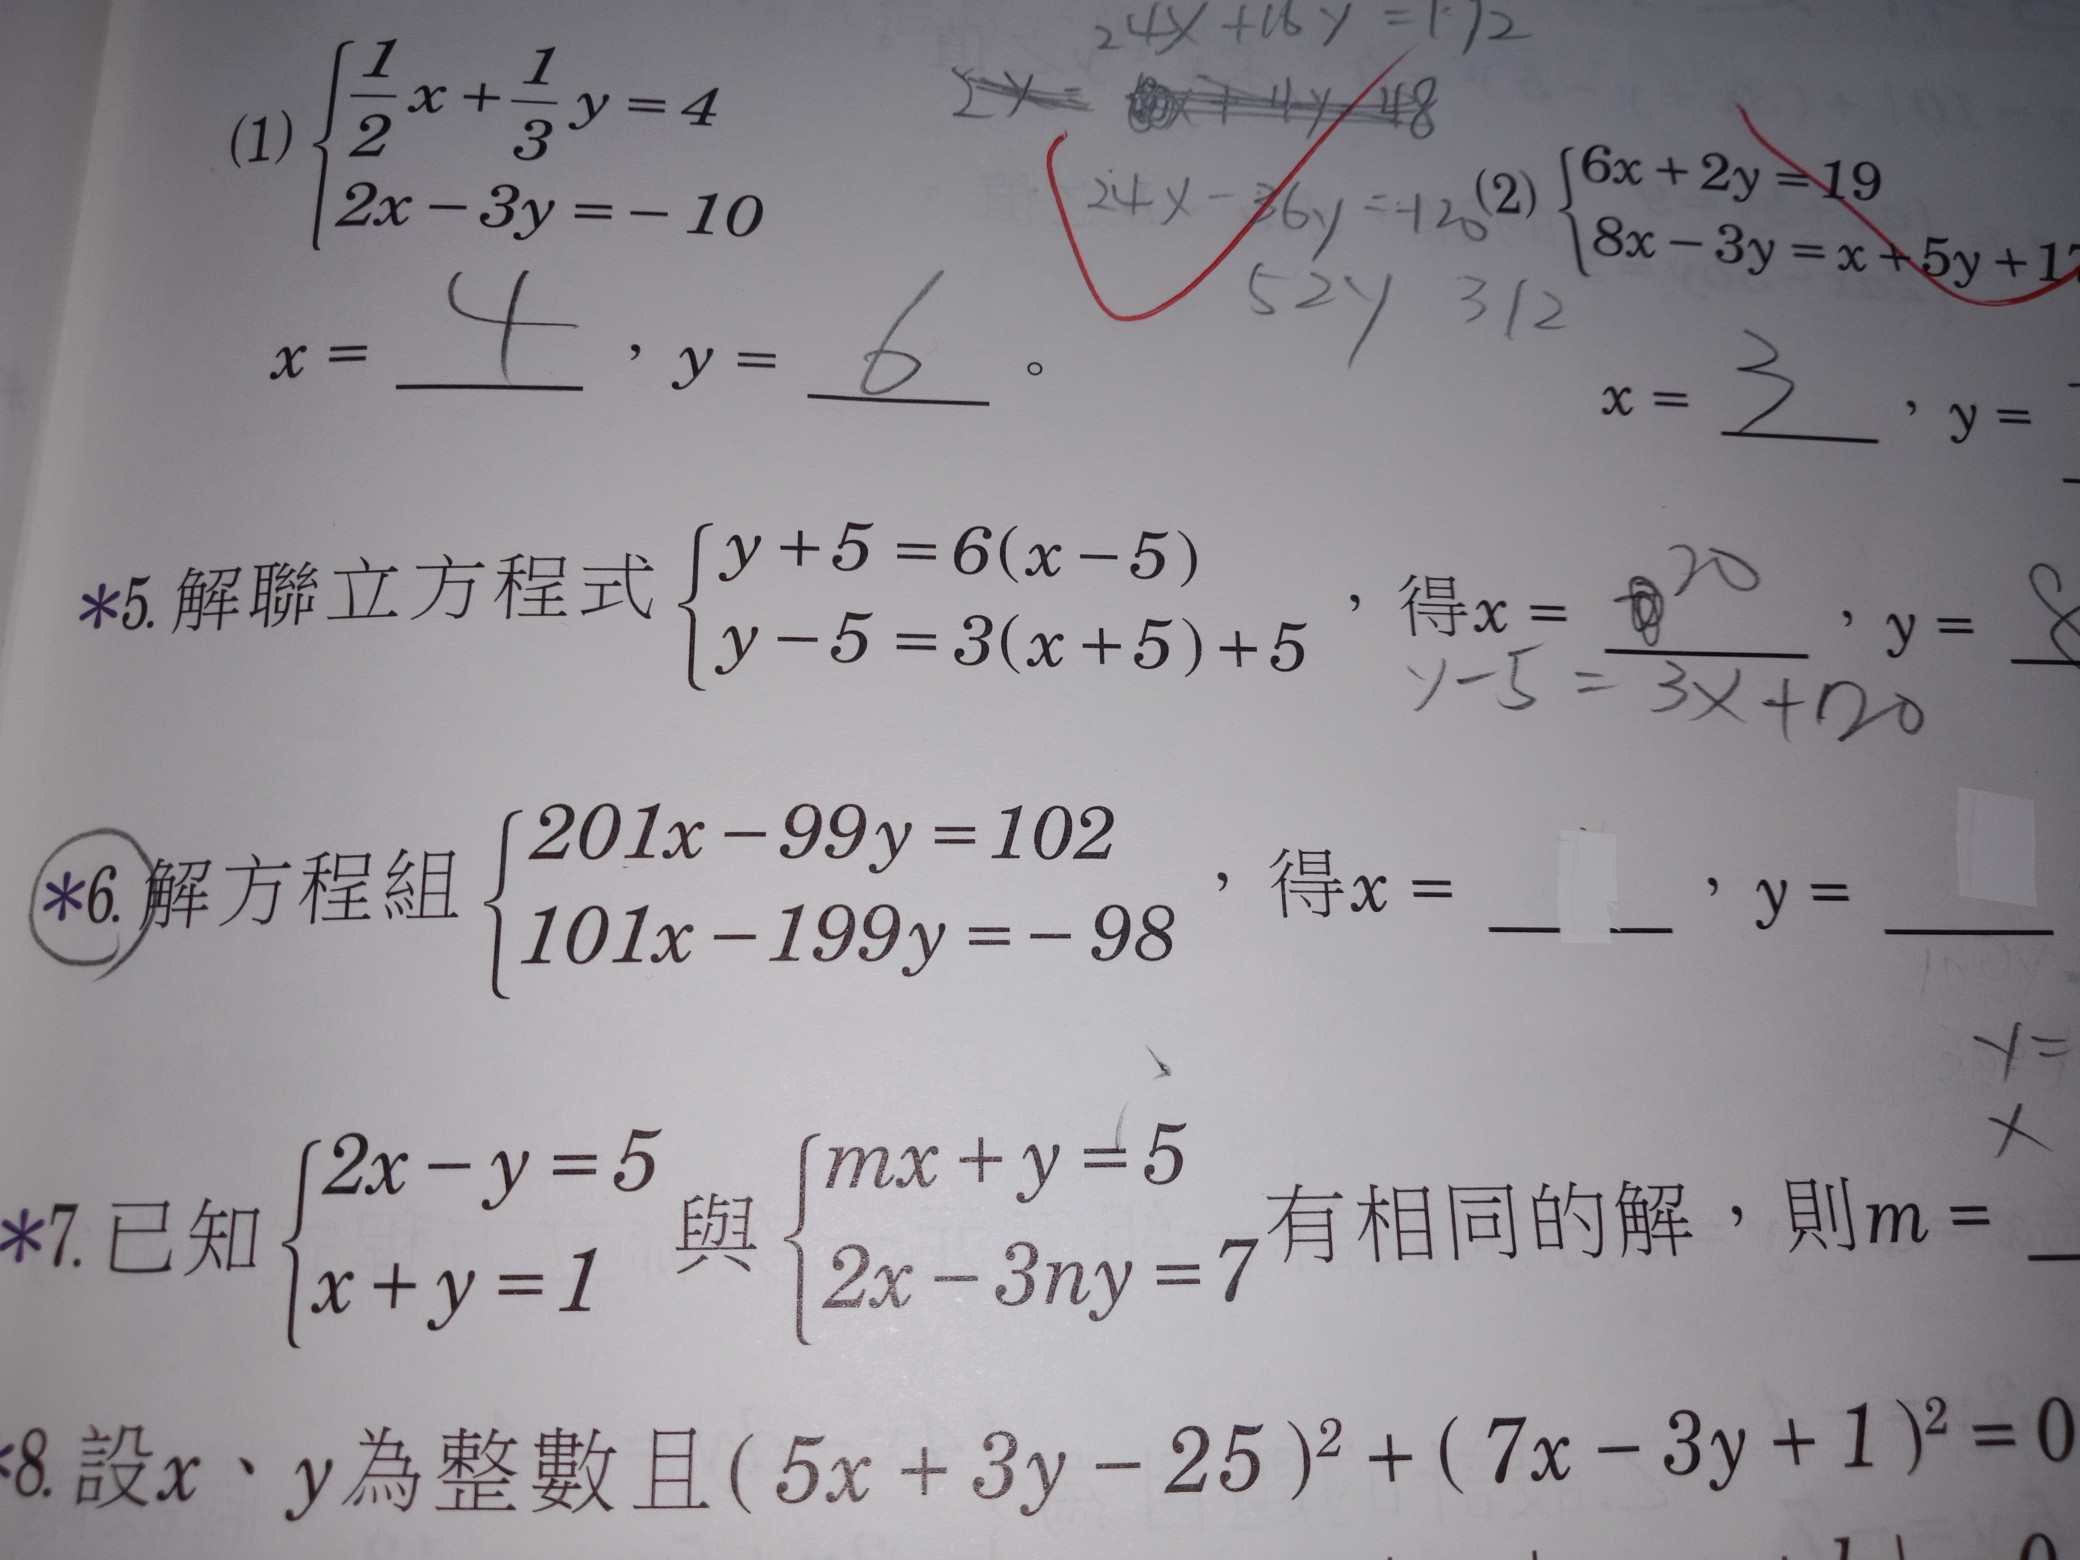 24x+16y=192
(1) { 1/2 x + 1/3 y = 4
2x − 3y = − 10
24x−36y=-120
52y 312
x = 4 ， y = 6 。
(2) { 6x + 2y = 19
8x − 3y = x + 5y + 17
x = 3 ， y =
*5. 解聯立方程式 { y + 5 = 6(x − 5)
y − 5 = 3(x + 5) + 5 ， 得x = 20 ， y = 8
y−5 = 3x+20
*6. 解方程組 { 201x − 99y = 102
101x − 199y = − 98 ， 得x = ， y =
y=
x
*7. 已知 { 2x − y = 5
x + y = 1 與 { mx + y = 5
2x − 3ny = 7 有相同的解 ， 則m =
*8. 設x 、 y為整數且( 5x + 3y − 25 )² + ( 7x − 3y + 1 )² = 0